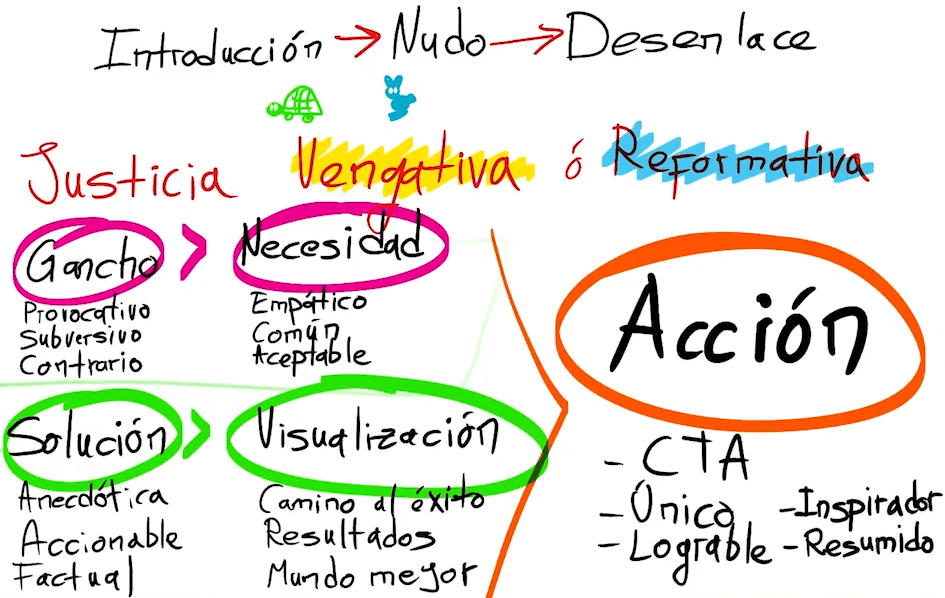 Introducción → Nudo → Desenlace
Justicia Vengativa ó Reformativa
Gancho > Necesidad
Provocativo
Subversivo
Contrario
Empático
Común
Aceptable
Solución > Visualización
Anecdótica
Accionable
Factual
Camino al éxito
Resultados
Mundo mejor
Acción
- CTA
- Único - Inspirador
- Lograble - Resumido